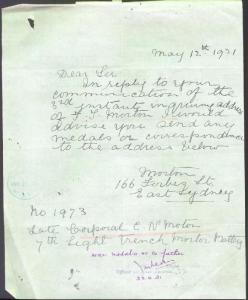 May 12th 1921
Dear Sir
In reply to your
communication of the
3rd instant inquiring address
of F. S. Morton I would
advise you send any
medals or correspondence
to the address below
Morton
166 Forbes St
East Sydney
No 1973
Late Corporal E. N. Morton
7th Light Trench Mortar Battery
war medals as to father